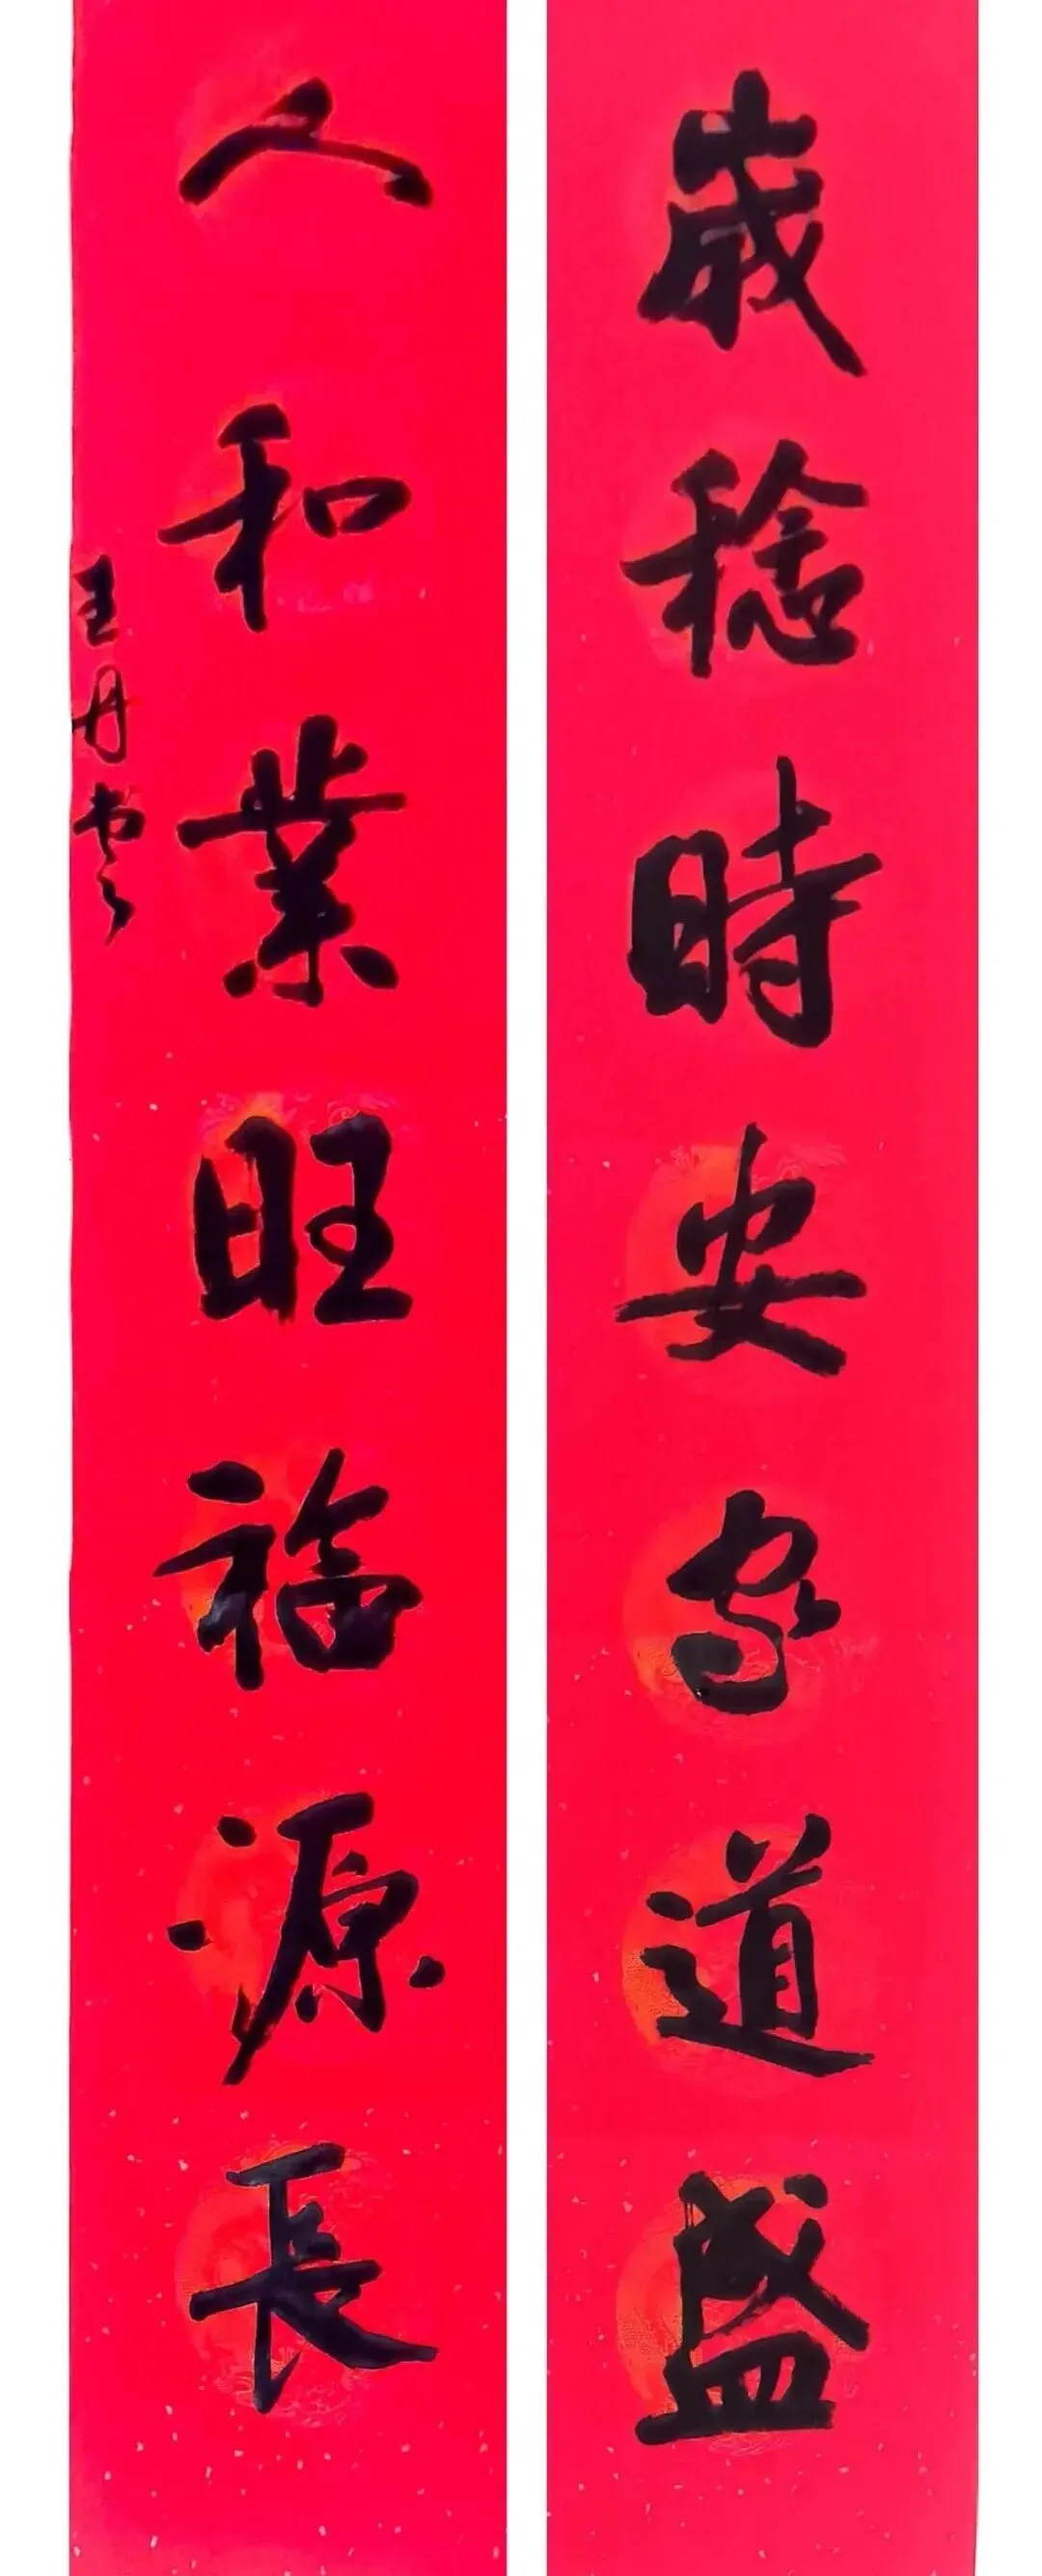 歲稔時安家道盛
人和業旺福源長
王丹书